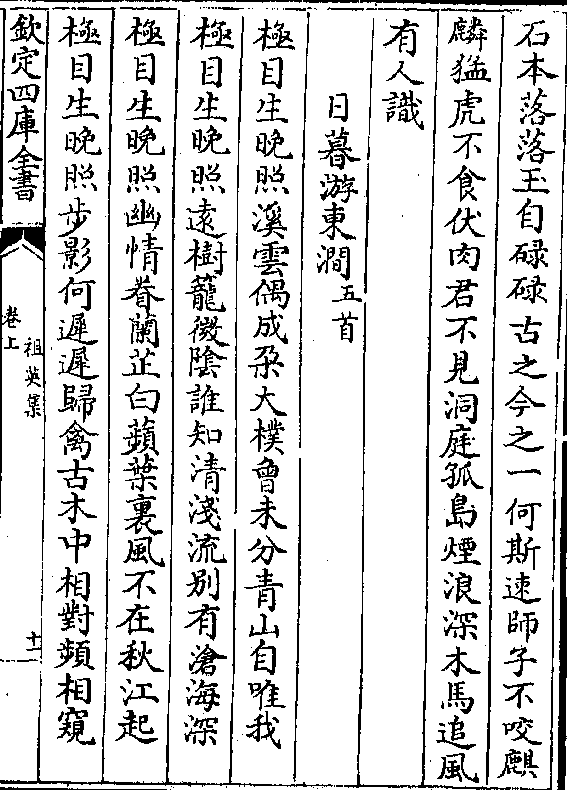 石本落落玉自碌碌古之今之一何斯速師子不咬麒
麟猛虎不食伏肉君不見洞庭孤島煙浪深木馬追風
有人識
日暮游東澗五首
極目生晚照溪雲偶成朶大樸曾未分青山自唯我
極目生晚照遠樹蘢微陰誰知清淺流別有滄海深
極目生晚照幽情眷蘭芷白蘋葉裏風不在秋江起
極目生晚照步影何遲遲歸禽古木中相對頻相窺
欽定四庫全書
祖英集
卷上
十一